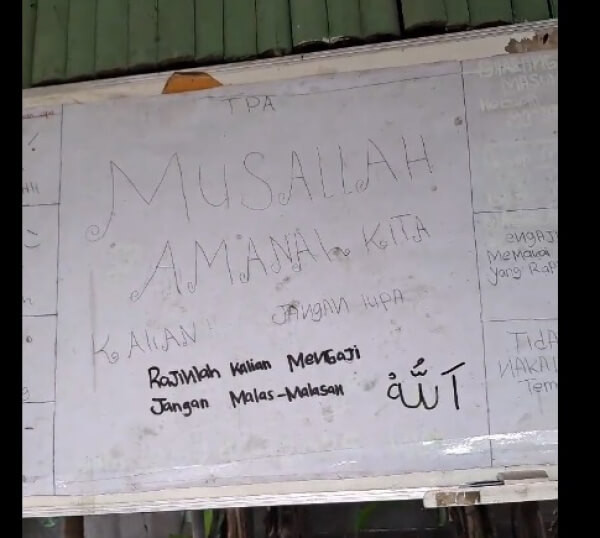 TPA
MUSALLAH
AMANAH KITA
KALIAN JANGAN lupa
RaJiNlah Kalian MeNGaJi
Jangan Malas-Malasan
اَللّٰهُ
eNgaJi
MeMakai
yang RaPi
TidA
NAKAL
Tem